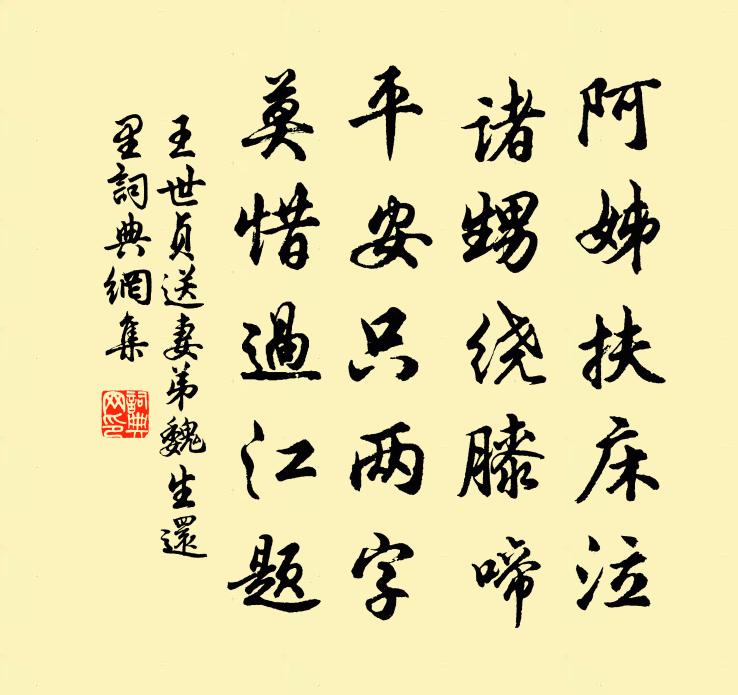 阿姊扶床泣
诸甥绕膝啼
平安只两字
莫惜過江题
王世貞送妻弟魏生還
里詞典網集
詞典
网印